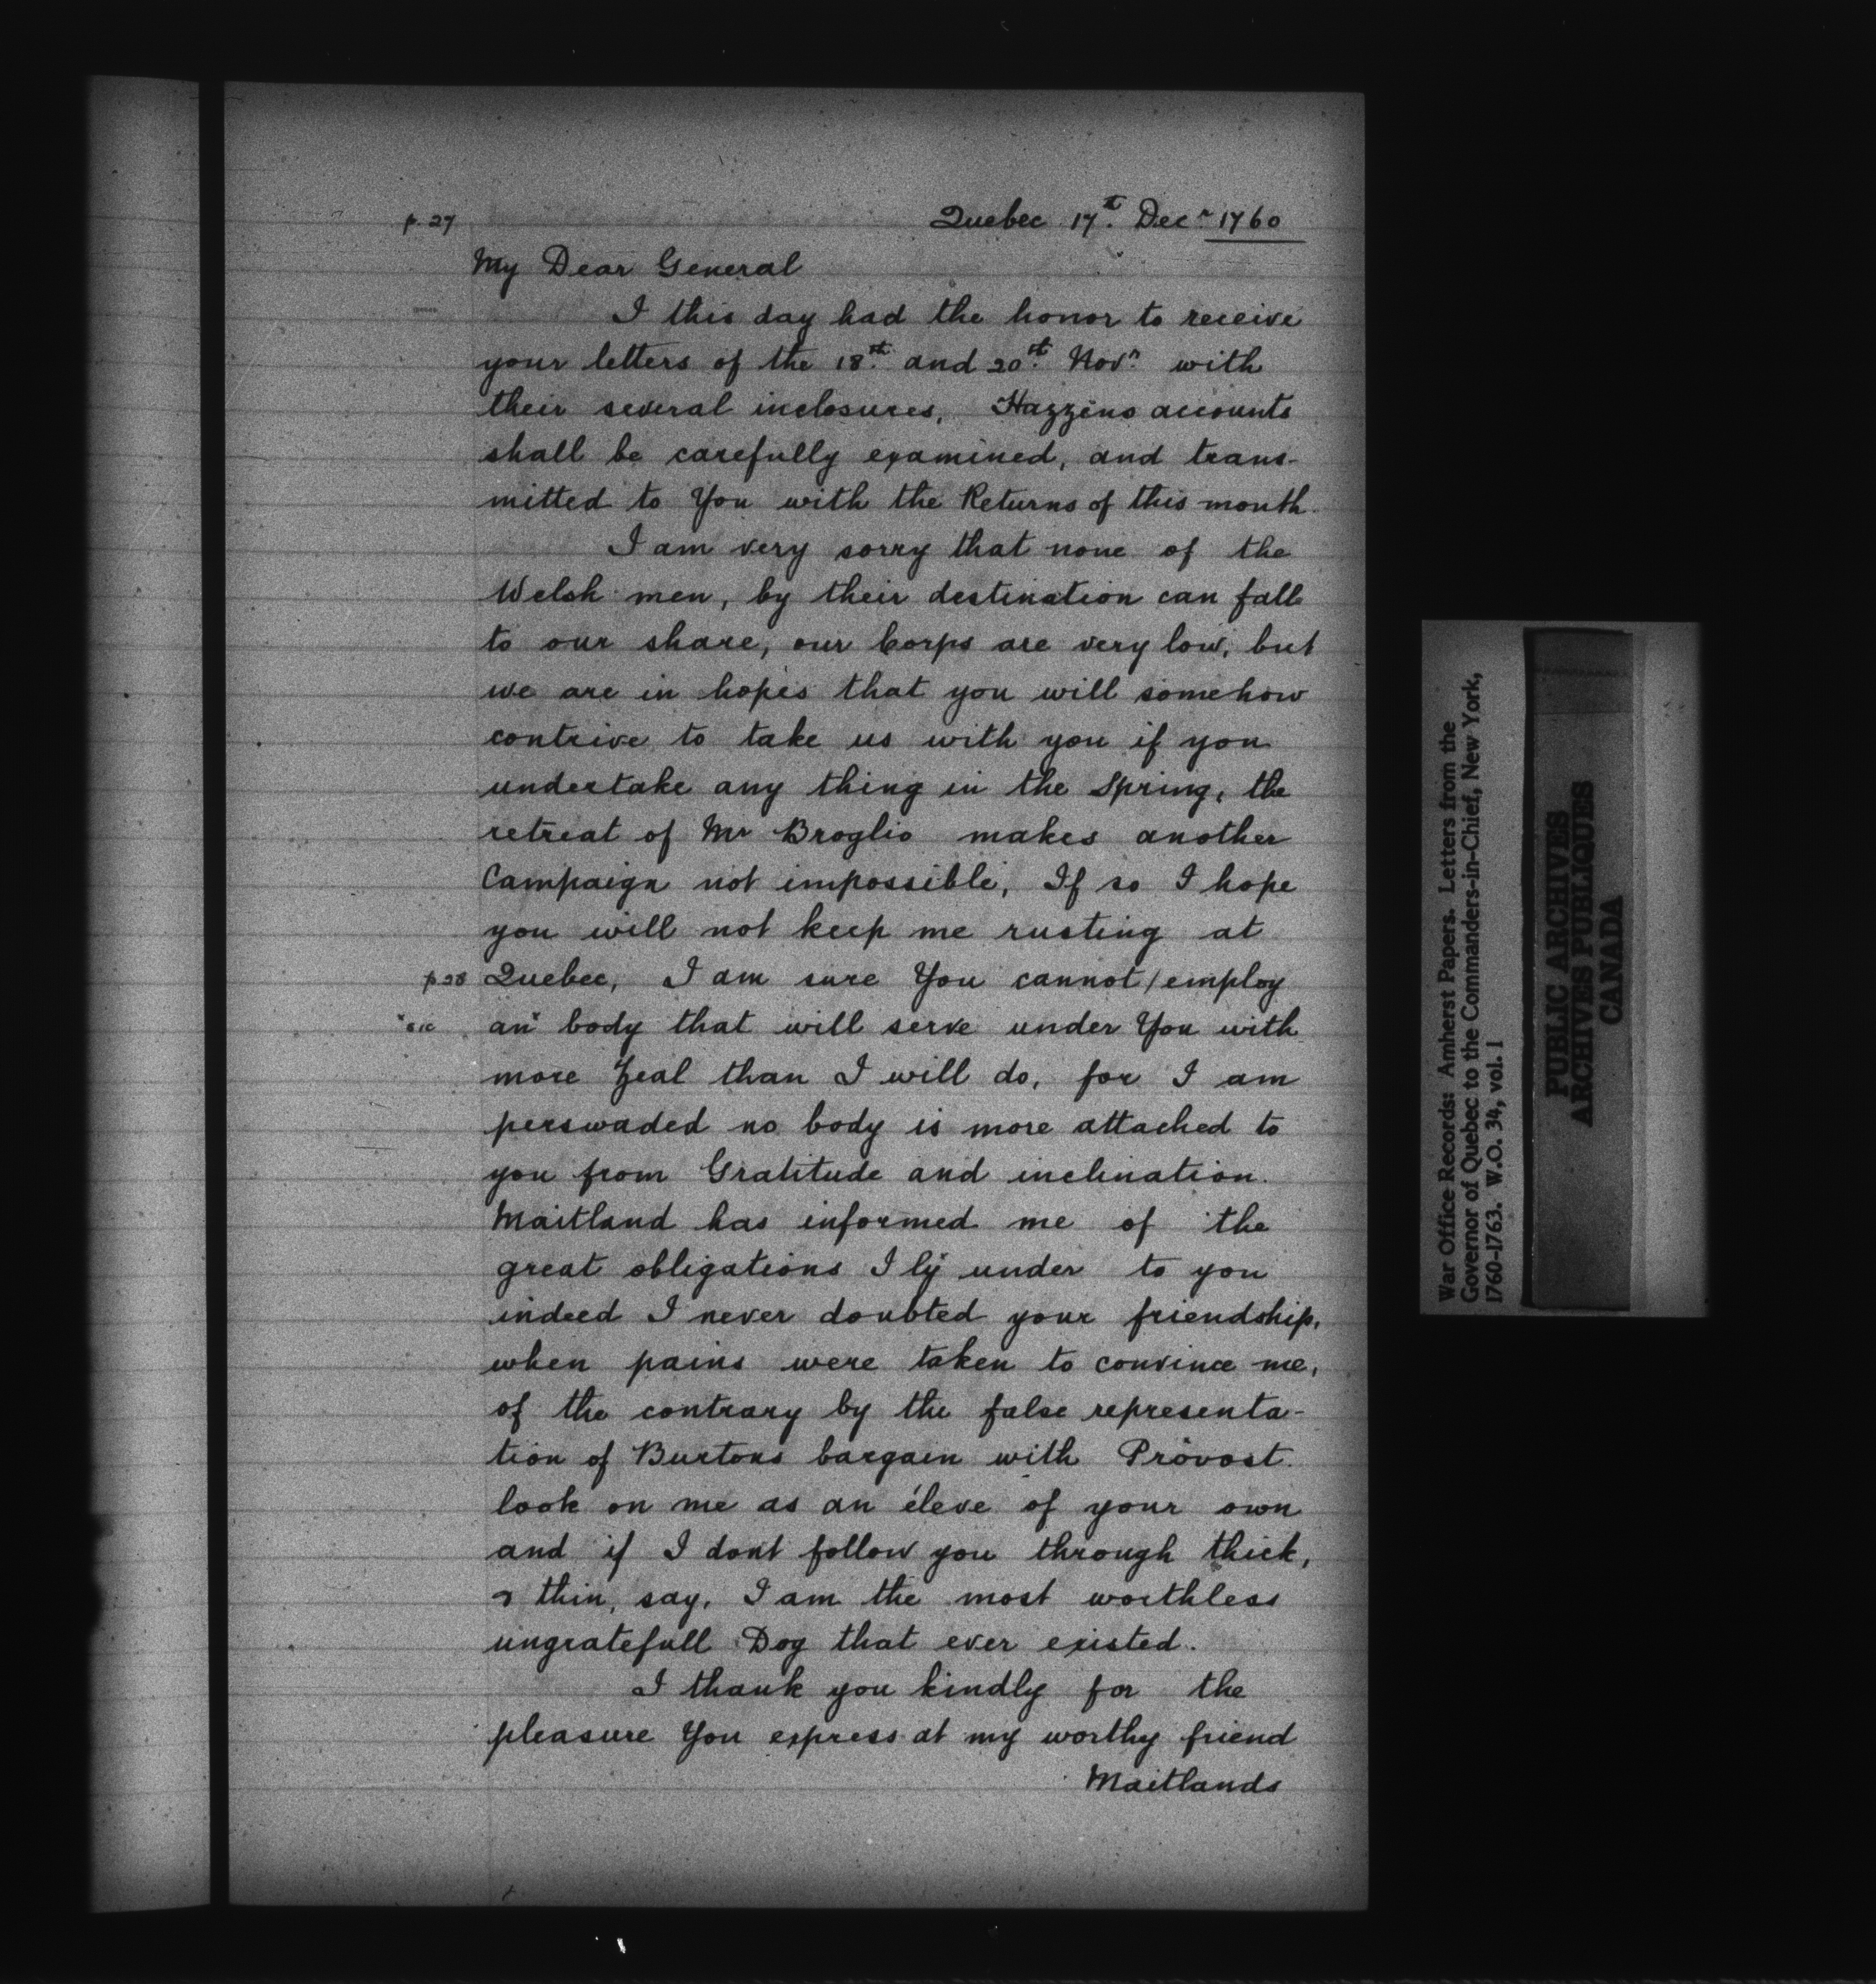 p. 27
Quebec 17th. Decr 1760
My Dear General
I this day had the honor to receive
your letters of the 18th. and 20th. Novr. with
their several inclosures, Hazzens accounts
shall be carefully examined, and trans-
mitted to You with the Returns of this month.
I am very sorry that none of the
Welsh men, by their destination can fall
to our share, our Corps are very low, but
we are in hopes that you will somehow
contrive to take us with you if you
undertake any thing in the Spring, the
retreat of Mr Broglio makes another
Campaign not impossible, If so I hope
you will not keep me rusting at
p 28 Quebec, I am sure You cannot / employ
"sic an" body that will serve under You with
more Zeal than I will do, for I am
perswaded no body is more attached to
you from Gratitude and inclination.
Maitland has informed me of the
great obligations I lÿ under to you
indeed I never doubted your friendship,
when pains were taken to convince me,
of the contrary by the false representa-
tion of Burtons bargain with Prôvost.
look on me as an éleve of your own
and if I dont follow you through thick,
& thin, say, I am the most worthless
ungratefull Dog that ever existed.
I thank you kindly for the
pleasure You express at my worthy friend
Maitlands
War Office Records: Amherst Papers. Letters from the
Governor of Quebec to the Commanders-in-Chief, New York,
1760-1763. W.O. 34, vol. 1
PUBLIC ARCHIVES
ARCHIVES PUBLIQUES
CANADA